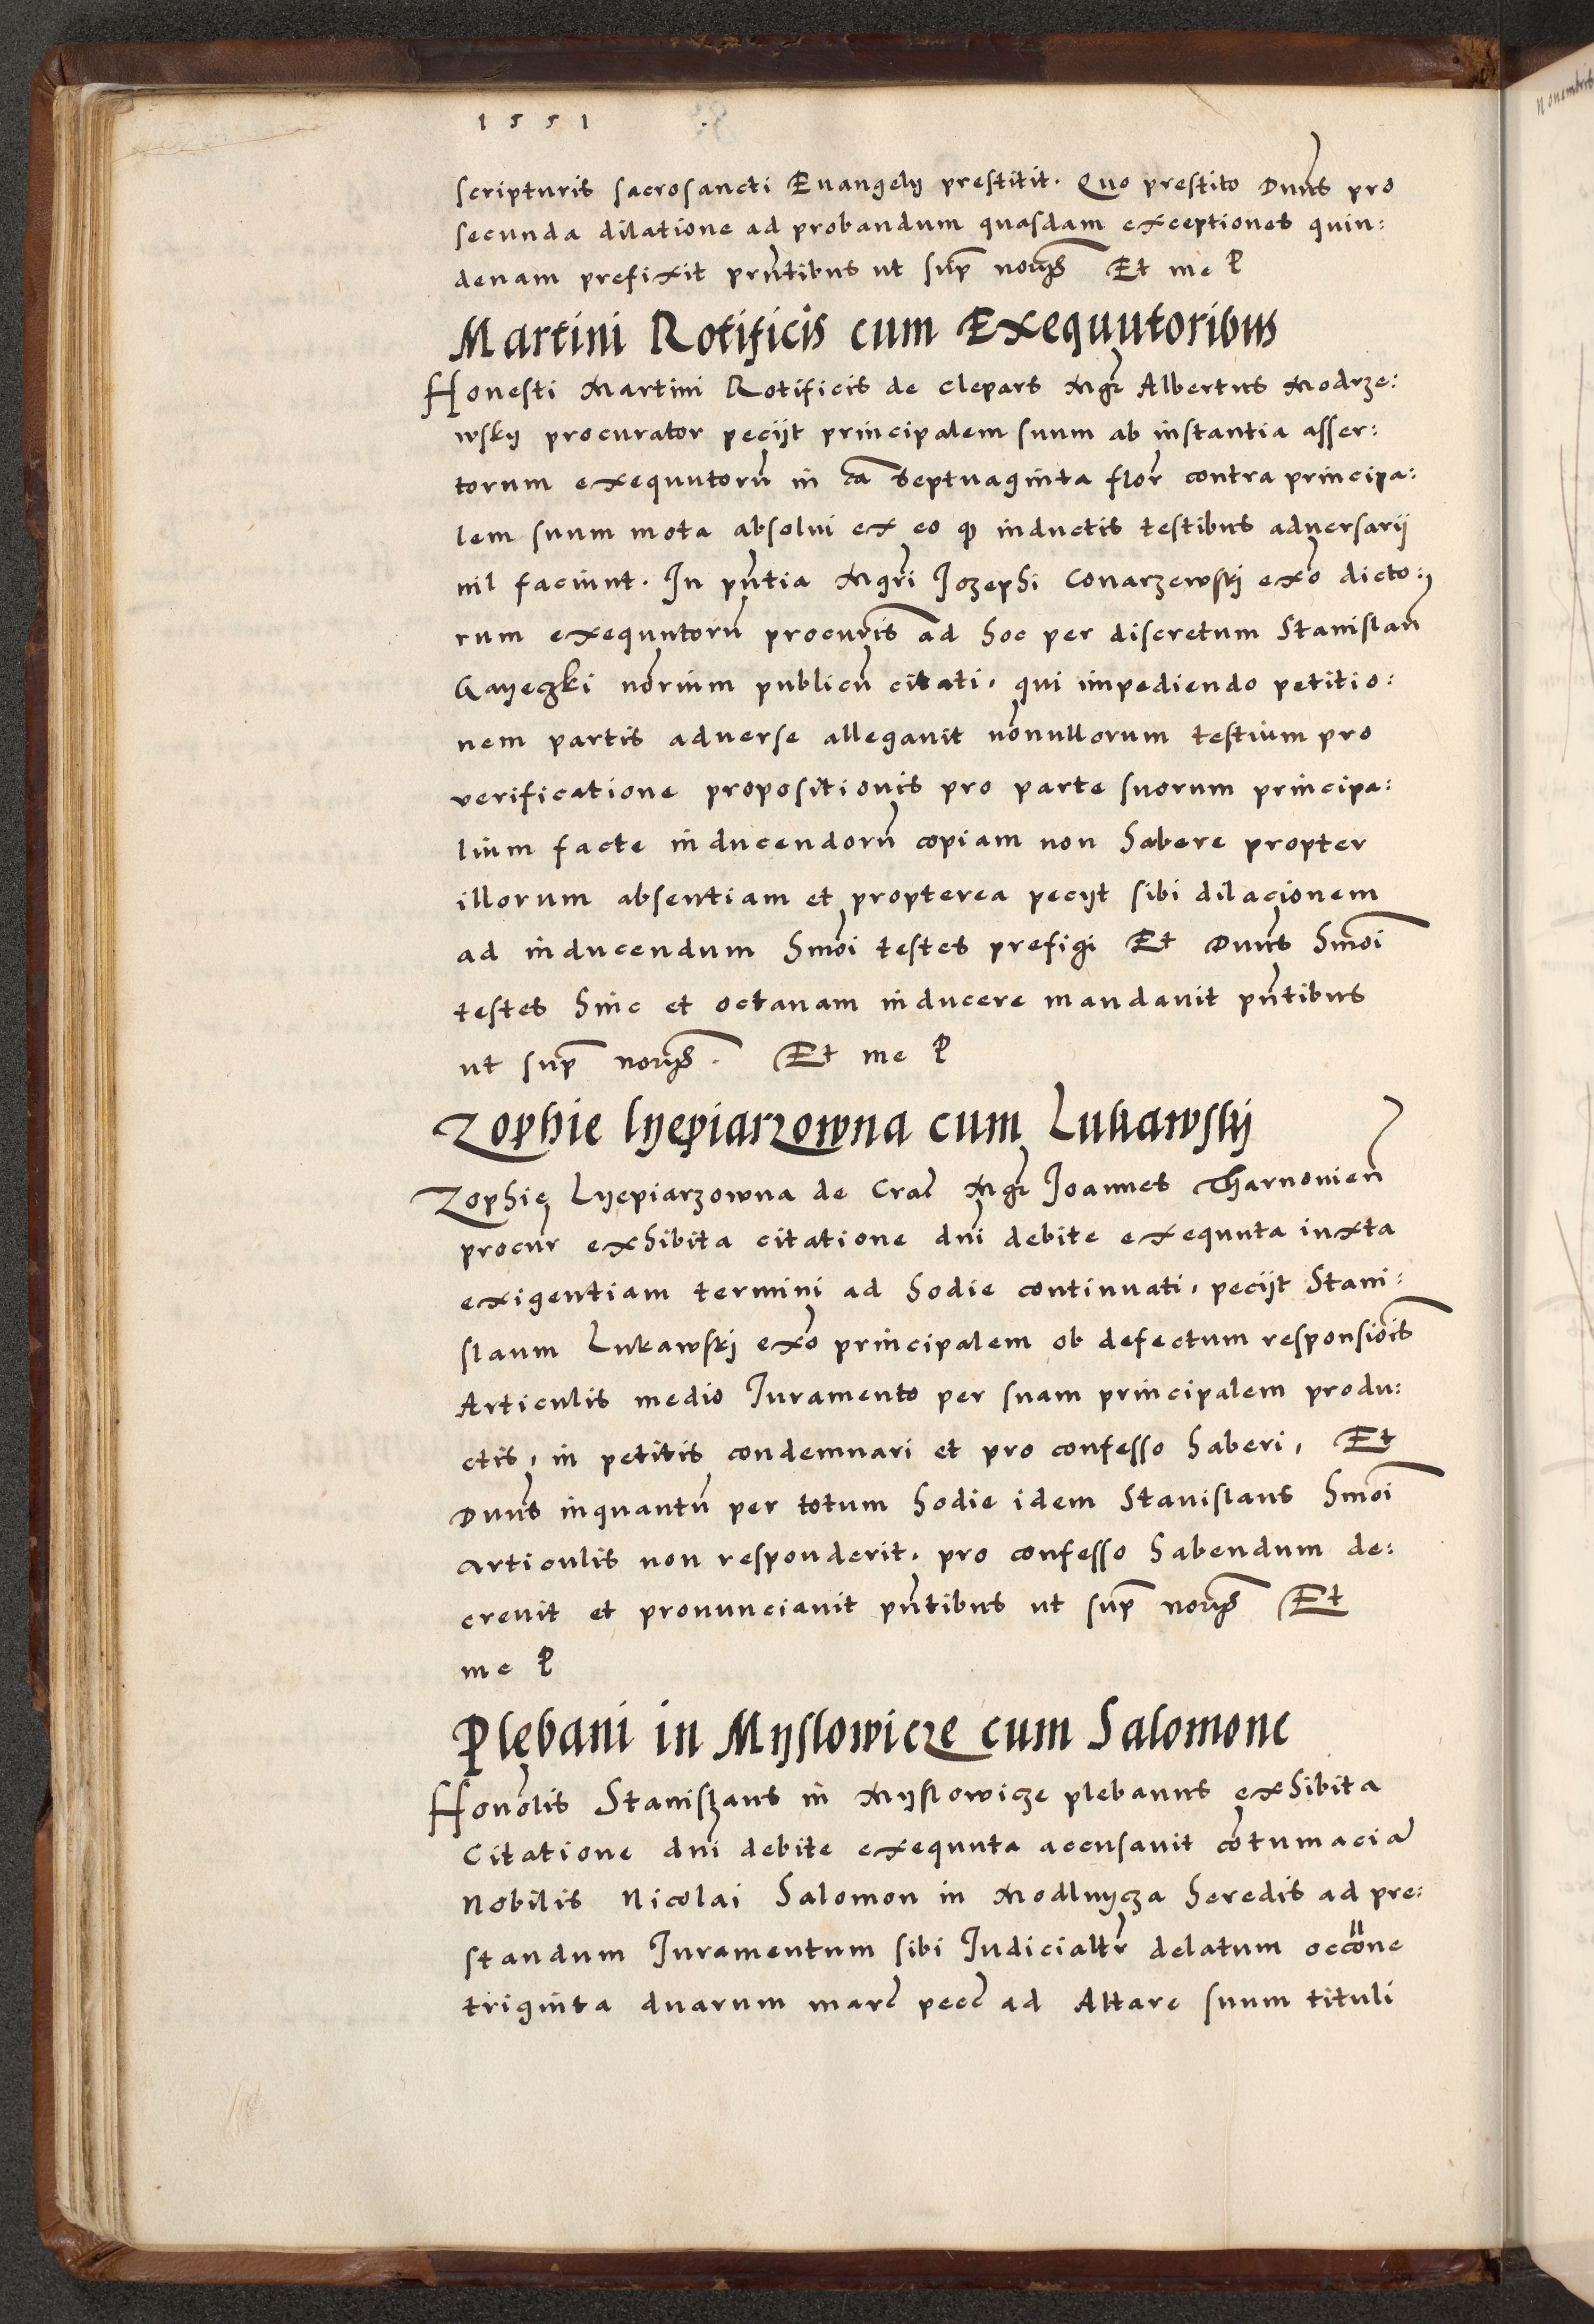 1551
scripturis sacrosancti Euangelij prestitit. Quo prestito Dnus pro
secunda dilatione ad probandum quasdam exceptiones quin:
denam prefixit pnтibus ut supra Et me P
Martini Rotificis cum Exequutoribus
Honesti Martini Rotificis de Clepars Mgr Albertus Modrze:
wskij procurator pecijt principalem suum ab instantia asser:
torum exequutorum in ca septuaginta flor contra principa:
lem suum mota absolui ex eo qd inductis testibus aduersarij
nil faciunt. In pntia Mgri Jozephi Conarzewskj exo dicto:
rum exequutorum procuris ad hoc per discretum Stanislaum
Gayeczki norium publicum citati, qui impediendo petitio:
nem partis aduerse allegauit nonullorum testium pro
verificatione propositionis pro parte suorum principa:
lium facte inducendorum copiam non habere propter
illorum absentiam et propterea pecijt sibi dilacionem
ad inducendum hmoi testes prefigi Et Dnus hmoi
testes hinc et octauam inducere mandauit pntibus
ut supra Et me P
Zophie lyepiarzowna cum Lukawskij
Zophie Lyepiarzowna de Crac Mgr Joannes Tharnouien
procur exhibita citatione dni debite exequuta iuxta
exigentiam termini ad hodie continuati, pecijt Stani:
slaum Lukawskj exo principalem ob defectum responsiois
Articulis medio Juramento per suam principalem produ:
ctis, in petitis condemnari et pro confesso haberi, Et
Dnus inquantum per totum hodie idem Stanislaus hmoi
articulis non responderit, pro confesso habendum de:
creuit et pronunciauit pntibus ut supra Et
me P
Plebani in Myslowicze cum Salomone
Honolis Stanislaus in Myslowicze plebanus exhibita
Citatione dni debite exequuta accusauit contumaciam
Nobilis Nicolai Salomon in Modlnycza heredis ad pre:
standum Juramentum sibi Judicialtr delatum occone
triginta duarum marc pecc ad Altare suum tituli